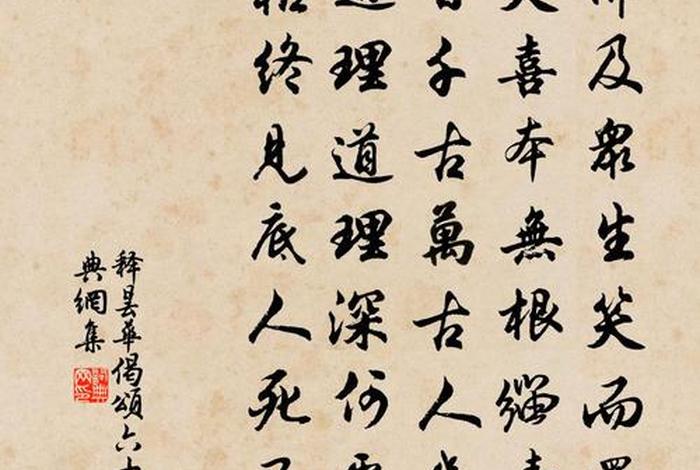 及眾生笑而
喜本無根緇
千古萬古人
理道理深何
終見底人死
釋曇華偈頌六
典網集